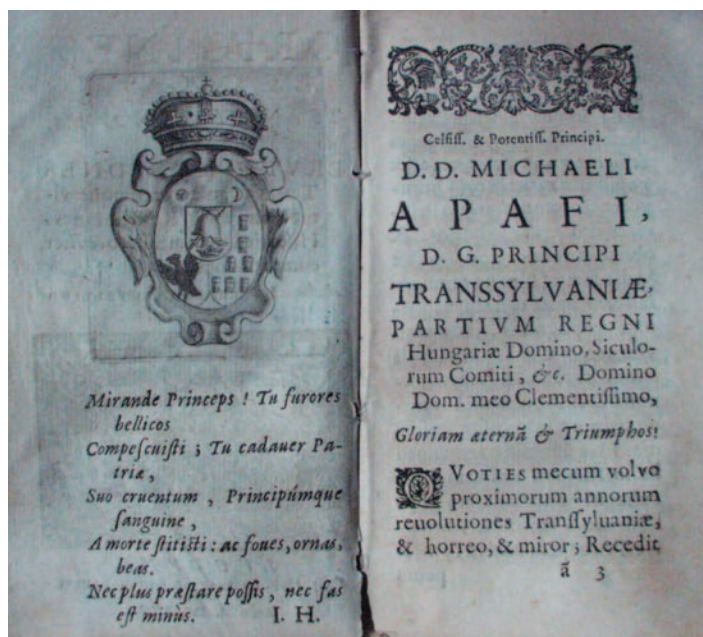 Mirande Princeps ! Tu furores
bellicos
Compeſcuiſti ; Tu cadauer Pa-
triæ,
Suo cruentum , Principúmque
ſanguine ,
A morte ſtitiſti : ac foues, ornas,
beas.
Nec plus præſtare poſſis , nec fas
eſt minùs. I. H.
Celſiſſ. & Potentiſſ. Principi.
D. D. MICHAELI
APAFI,
D. G. PRINCIPI
TRANSSYLVANIÆ,
PARTIVM REGNI
Hungariæ Domino, Siculo-
rum Comiti , &c. Domino
Dom. meo Clementiſſimo,
Gloriam æternã & Triumphos!
QVOTIES mecum volvo
proximorum annorum
reuolutiones Tranſſyluaniæ,
& horreo, & miror ; Recedit
ã 3